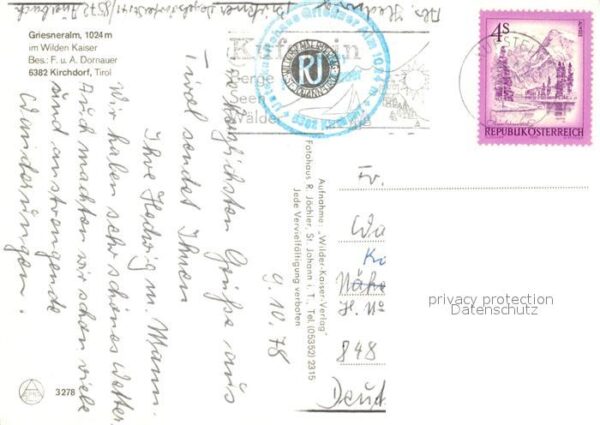 Griesneralm, 1024 m
im Wilden Kaiser
Bes.: F. u. A. Dornauer
6382 Kirchdorf, Tirol
9.10.78
Herzlichsten Grüße aus
Tirol sendet Ihnen
Ihre Hedwig m. Mann.
Wir haben sehr schönes Wetter.
Auch machten wir schon viele
und anstrengende
Wanderungen.
3278
Aufnahme: "Wilder-Kaiser-Verlag"
Fotohaus R. Jöchler, St. Johann i. T., Tel. (05352) 2315
Jede Vervielfältigung verboten
Kufstein
Berge
Seen
Wälder
RJ
Griesner Alm 1024 m
4S
REPUBLIK ÖSTERREICH
Fr.
Wa
Ko
Nähe
H. No
848
Deut
privacy protection
Datenschutz